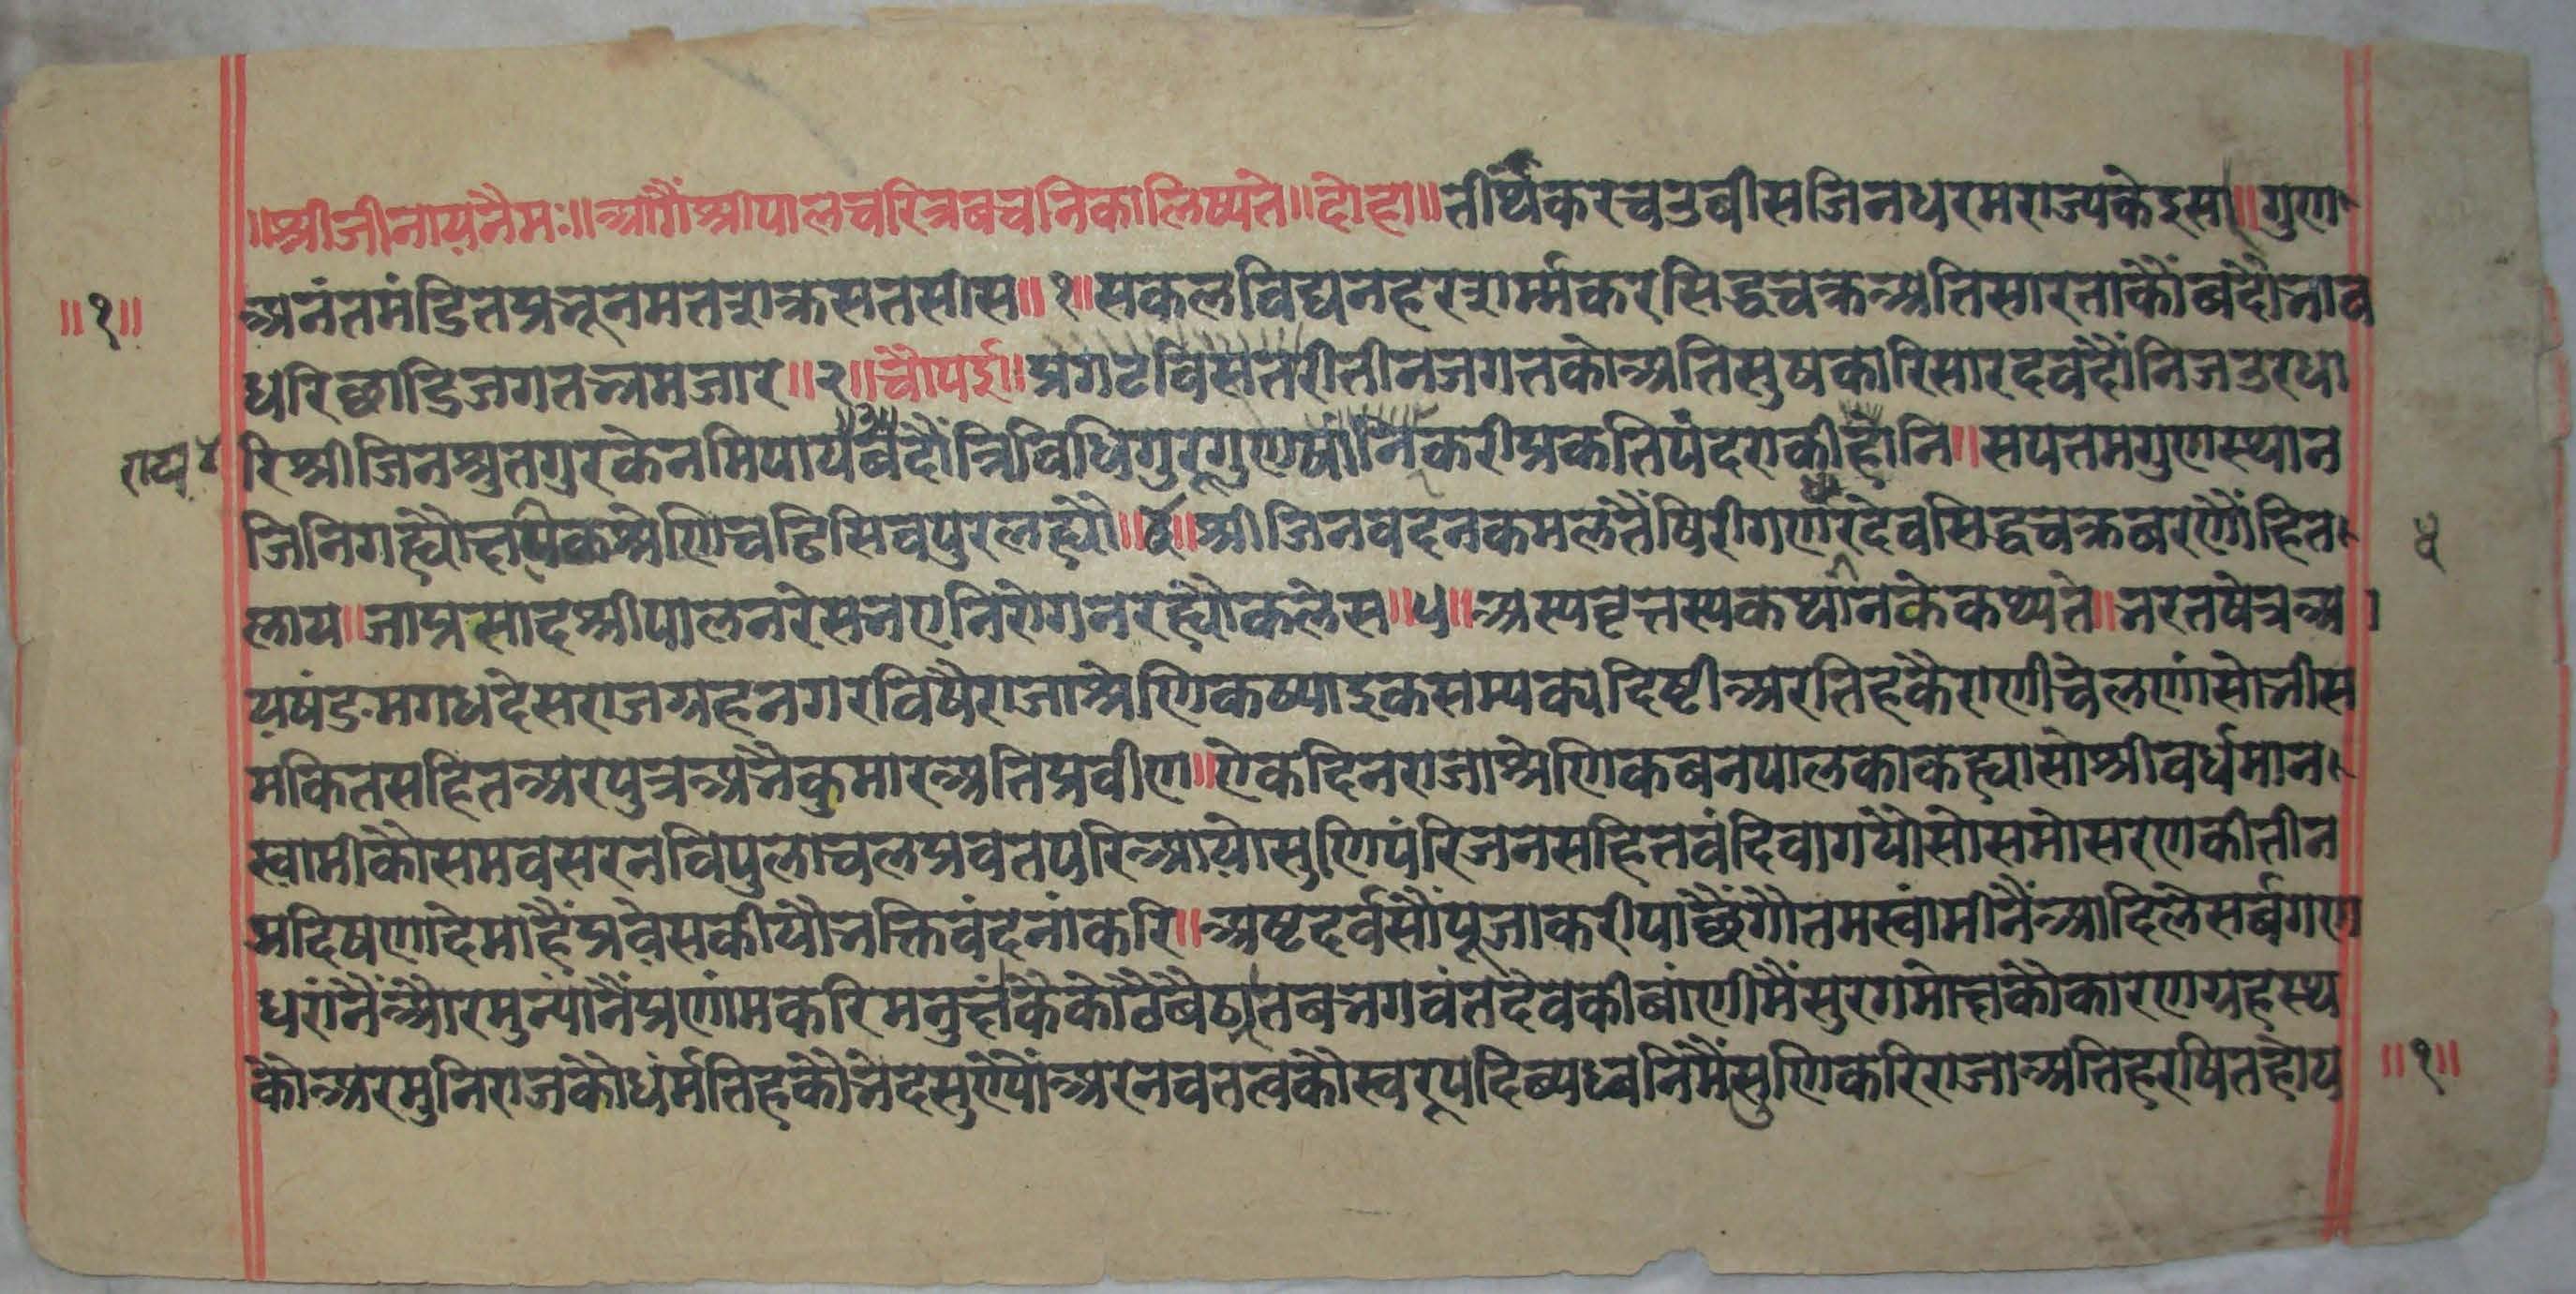 ॥श्रीजीनायनैमः॥अार्गैश्रीपालचरित्रबचनिकालिष्यते॥दोहा॥तीर्थंकरचउबीसजिनधरमराज्यकेइस॥गुण
॥१॥ अनंतमंडितप्रभूनमतशक्रसतसीस॥१॥सकलविघनहरशर्म्मकरसिद्धचक्रअतिसारताकौंबंदौंभाव
धरिछाडिजगतभ्रमजार॥२॥चौपई॥प्रगटविसतरीतीनजगतकोअतिसुषकारिसारदवंदौंनिजउरधा
रिश्रीजिनश्रुतगुरकेनमिपाय॥३॥बंदौंत्रिविधिगुरूगुणषांनिकरीप्रकतिपंदराकीहांनि॥सपतमगुणस्थान
जिनिगह्यौक्षपिकश्रेणिचढिसिवपुरलह्यौ॥४॥श्रीजिनवदनकमलतैंषिरीगणधरदेवसिद्धचक्रबरणौंहित
ल्याय॥जाप्रसादश्रीपालनरेसभएनिरोगनरह्यौकलेस॥५॥अस्यवृत्तस्यकथांनकेकथ्यते॥भरतषेत्रअा
यषंडमगधदेसराजग्रहनगरविषैराजाश्रेणिकष्याइकसम्यक्यदिष्टीअरतिहकैराणीचेलणांसोभीस
मकितसहितअरपुत्रअभैकुमारअतिप्रवीण॥ऐकदिनराजाश्रेणिकबनपालकाकह्यासोश्रीवर्धमान
स्वामीकौसमवसरनविपुलाचलप्रवतपरिअायोसुणिपंरिजनसहितवंदिवागयौसोसमोसरणकीतीन
प्रदिषणादेमाहैंप्रवेसकीयौभक्तिवंदनांकरि॥अष्टदर्वसौंपूजाकरीपाछैंगौतमस्वांमीनैंअादिलैसर्बगण
धरांनैंऔरमुन्यांनैंप्रणांमकरिमनुक्षंकैकोठैबैठ्यातबभगवंतदेवकीबांणीमैंसुरगमोक्षकौकारणग्रहस्थ
कोअरमुनिराजकौधर्मतिहकौभेदसुण्यौंअरनवतत्वकौस्वरूपदिव्यध्वनिमैंसुणिकरिराजाअतिहरषितहोय ॥१॥